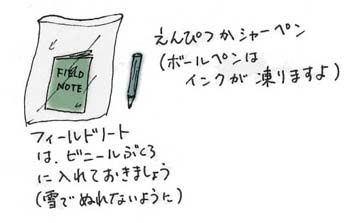 FIELD
NOTE
えんぴつかシャーペン
(ボールペンは
インクが凍りますよ)
フィールドリート
は、ビニールぶくろ
に入れておきましょう
(雪でぬれないように)